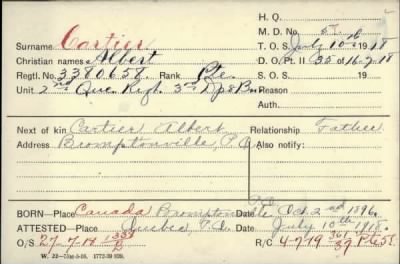 H. Q.
M. D. No. 5
Surname Cartier
T. O. S. July 10th 1918
Christian names Albert
D. O. Pt. II 35 of 16-7-18
Regtl. No. 3380658 Rank Pte.
S. O. S. 19
Unit 2nd Que. Regt. 3rd Dpt Bn
Reason
Auth.
Next of kin Cartier Albert
Relationship Father
Address Bromptonville, P.Q.
Also notify:
BORN Place Canada Bromptonville P.Q. Date Oct. 2nd 1896
ATTESTED Place Quebec P.Q. Date July 10th 1918
O/S 27-7-18
R/C 4-7-19